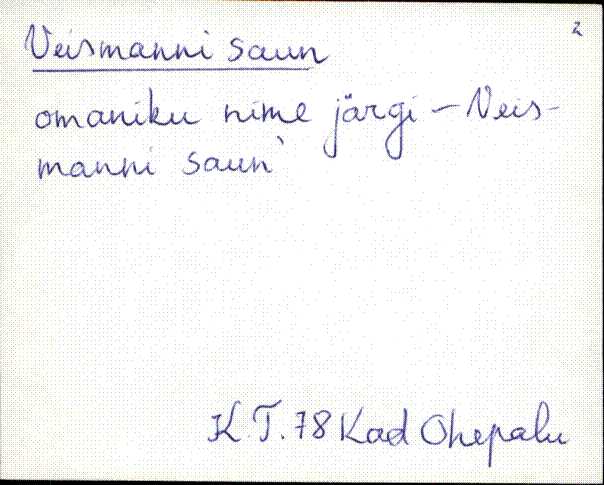 2
Veismanni saun
omaniku nime järgi – Veis-
manni saun`
K.T. 78 Kad Ohepalu